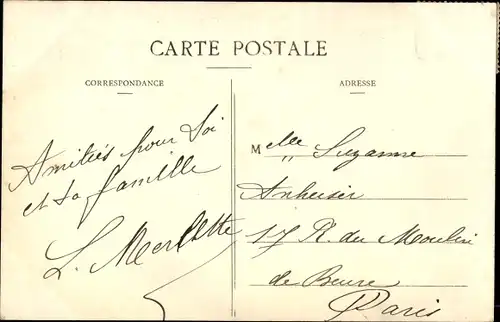 CARTE POSTALE
CORRESPONDANCE
ADRESSE
Amitiés pour Toi
et ta famille
L. Merlette
Melle Suzanne
Anheiser
17 R. du Moulin
de Beure
Paris